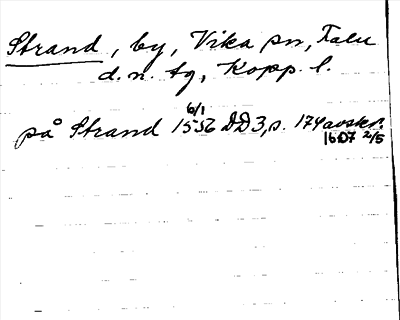 Strand, by, Vika sn, Falu
d.n. tg, Kopp. l.
på Strand 1556 6/1 DD3, s. 174 avskr.
1607 2/5